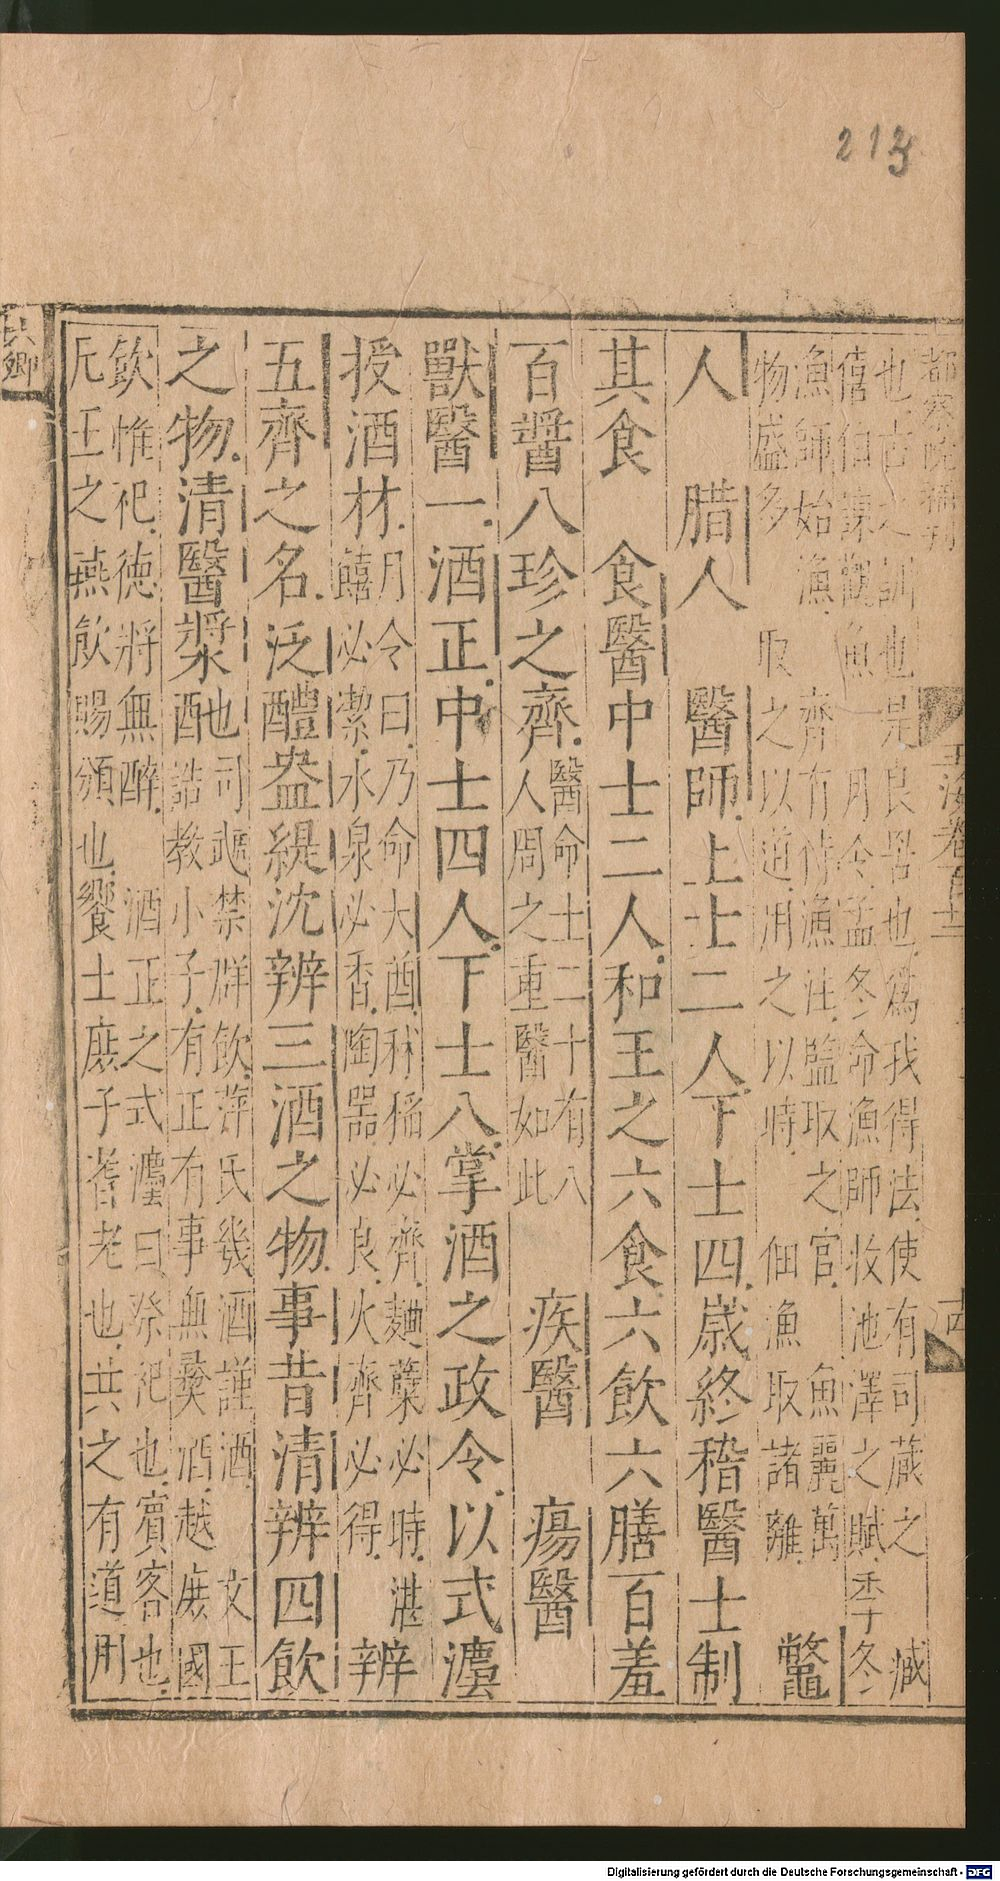 213
都察院補刊
玉海卷百十三
也古之訓也是良器也爲我得法使有司藏之
臧
僖伯諫觀魚
月令孟冬命漁師收池澤之賦季冬
漁師始漁
齊有侍漁注監取之官
魚麗萬
物盛多
取之以道用之以時
佃漁取諸離
鼈
人
腊人
醫師上士二人下士四歲終稽醫士制
其食
食醫中士二人和王之六食六飲六膳百羞
百醬八珍之齊
醫命士二十有八
人周之重醫如此
疾醫
瘍醫
獸醫一酒正中士四人下士八掌酒之政令以式灋
授酒材
月令曰乃命大酋秫稻必齊麴蘗必時湛
饎必潔水泉必香陶器必良火齊必得
辨
五齊之名泛醴盎緹沈辨三酒之物事昔清辨四飲
之物清醫漿酏
也司虣禁群飲萍氏幾酒謹酒
文王
誥教小子有正有事無彝酒越庶國
飲惟祀德將無醉
酒正之式灋曰祭祀也賓客也
王之燕飲賜頒也饗士庶子耆老也共之有道用
兵卿
Digitalisierung gefördert durch die Deutsche Forschungsgemeinschaft - DFG